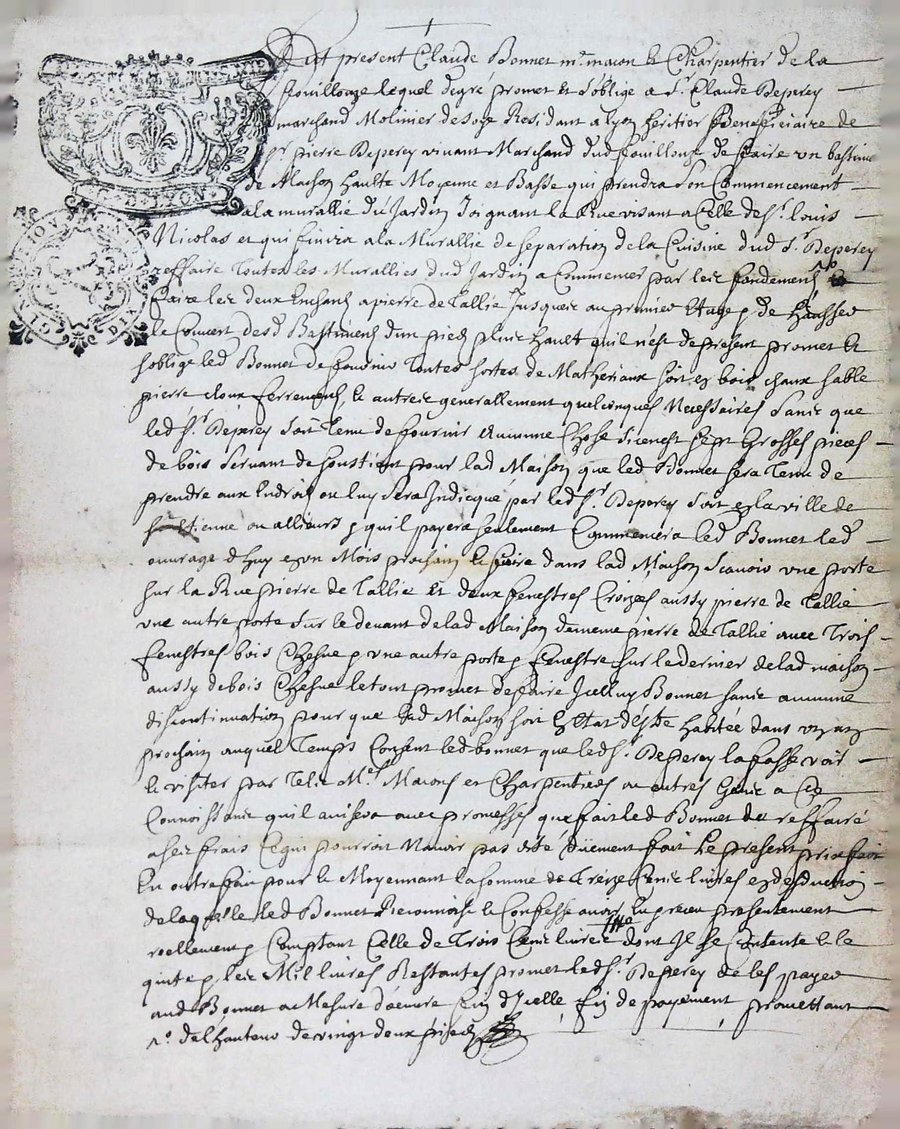 D. LYON
DIX
fut present Claude Bonnet mᵉ masson & Charpentier de la
fouillouze lequel degré promet et s'oblige a Sʳ. Claude Deperey
marchand Molinier de soye Residant a lyon heritier Beneficiaire de
Sʳ pierre Deperey vivant Marchand dud fouillouze de ffaire un bastime
de Maison haulte Moyenne et Basse qui prendra son Commencement
a la murallie du Jardin Joignant la Rue visant a Celle de Sʳ. louis
Nicolas et qui finira a la Murallie de separation de la Cuisine dud Sʳ. Deperey
reffaire Toutes les Murallies dud Jardin a Commencer par les fondement
faire les deux a pierre de Tallie Jusques au premier Etage & de hausser
le Couvert desd Bastiments d'un pied plus hault quil n'est de present promet et
soblige led Bonnet de fournir Toutes sortes de Matheriaux soit en bois chaux sable
pierre cloux ferrements & autres generallement quelconques Necessaires sans que
led Sʳ. Deperey soit Tenu de fournir aucune Chose sicenest sept Grosses pieces
de bois servant de soustient pour lad Maison que led Bonnet sera Tenu de
prendre aux Endroit ou luy sera Indicqué par led Sʳ. Deperey soit en la ville de
Sᵗ Estienne ou allieurs & quil payera seulement Commencera led Bonnet led
ouvrage d'huy en un Mois prochain & faire dans lad Maison scavoir une porte
sur la Rue pierre de Tallie et deux fenestres Croizees aussy pierre de Tallie
une autre porte sur le devant de lad Maison de meme pierre de Tallie avec Trois
fenestres bois Chesne & une autre porte & fenestre sur le dernier de lad maison
aussy de bois Chesne le tout promet de faire Icelluy Bonnet sans aucune
discontinuation pour que lad Maison soit En Etat d'Este habitée dans un an
prochain auquel Temps Consent led bonnet que led Sʳ. Deperey la fasse voir
& visiter par Telz Mᵉˢ. Masons et Charpentiers ou autres Gens a Ce
Connoissans quil avisera avec promesses que fait led Bonnet de reffaire
a ses frais Ce qui pourroit N'avoir pas esté düement fait Le present prixfait
En outre fait pour & Moyennant la somme de Treize Cens livres en desduction
de laquelle led Bonnet Reconnoist & Confesse avoir Eu & receu presentement
reellement & Comptant Celle de Trois Cens livres dont Il se Contente & le
quitte & les Mil livres Restantes promet led Sʳ. Deperey de les payer
aud Bonnet a Mesure d'euvre fin d'Icelle, fin de payement promettant
de l'hauteur de vingt deux pieds